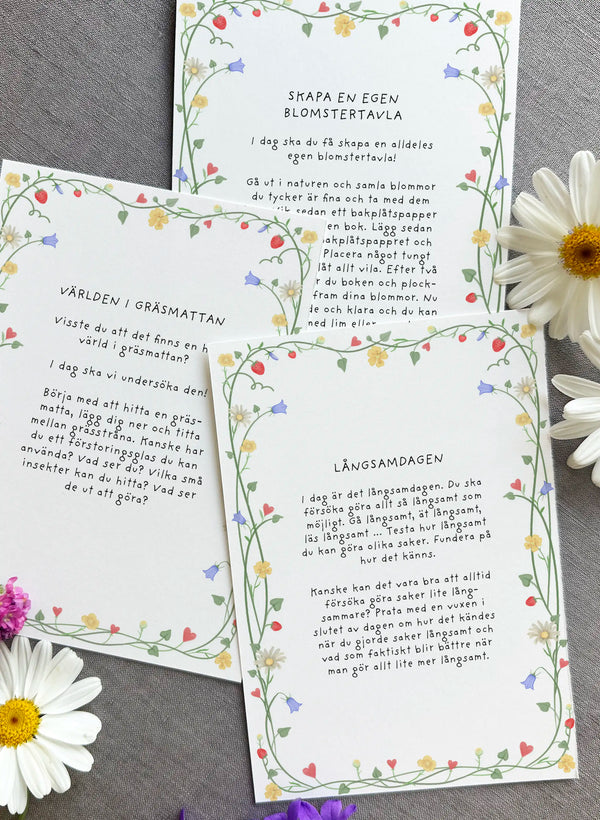 SKAPA EN EGEN
BLOMSTERTAVLA
I dag ska du få skapa en alldeles
egen blomstertavla!
Gå ut i naturen och samla blommor
du tycker är fina och ta med dem
sedan ett bakplåtspapper
en bok. Lägg sedan
bakplåtspappret och
Placera något tungt
låt allt vila. Efter två
du boken och plock-
fram dina blommor. Nu
de och klara och du kan
med lim eller
VÄRLDEN I GRÄSMATTAN
Visste du att det finns en h
värld i gräsmattan?
I dag ska vi undersöka den!
Börja med att hitta en gräs-
matta, lägg dig ner och titta
mellan grässtråna. Kanske har
du ett förstoringsglas du kan
använda? Vad ser du? Vilka små
insekter kan du hitta? Vad ser
de ut att göra?
LÅNGSAMDAGEN
I dag är det långsamdagen. Du ska
försöka göra allt så långsamt som
möjligt. Gå långsamt, ät långsamt,
läs långsamt ... Testa hur långsamt
du kan göra olika saker. Fundera på
hur det känns.
Kanske kan det vara bra att alltid
försöka göra saker lite lång-
sammare? Prata med en vuxen i
slutet av dagen om hur det kändes
när du gjorde saker långsamt och
vad som faktiskt blir bättre när
man gör allt lite mer långsamt.